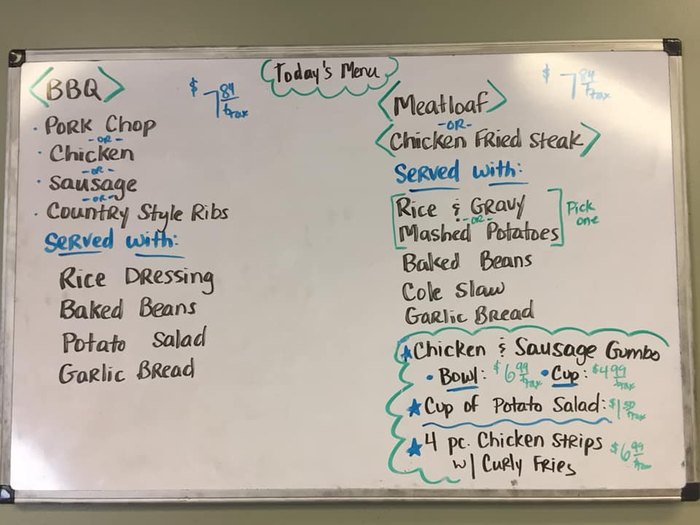 Today's Menu
<BBQ>
$7 84/+tax
· Pork Chop
-or-
· Chicken
-or-
· Sausage
-or-
· Country Style Ribs
Served with:
Rice Dressing
Baked Beans
Potato Salad
Garlic Bread
$7 84/+tax
<Meatloaf>
-or-
<Chicken Fried Steak>
Served with:
[Rice & Gravy
-or-
Mashed Potatoes] Pick one
Baked Beans
Cole Slaw
Garlic Bread
★Chicken & Sausage Gumbo
• Bowl: $6 99/+tax • Cup: $4 99/+tax
★Cup of Potato Salad: $1 50/+tax
★4 pc. Chicken Strips
w/ Curly Fries $6 99/+tax